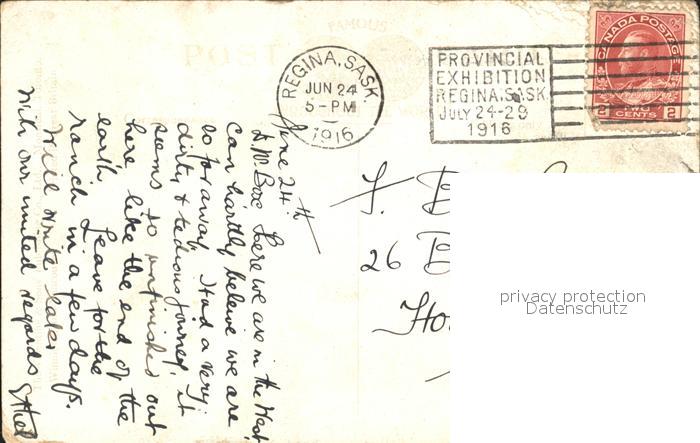 FAMOUS
POST
REGINA, SASK.
JUN 24
5-PM
1916
PROVINCIAL
EXHIBITION
REGINA, SASK.
JULY 24-29
1916
CANADA POSTAGE
2 CENTS 2
June 24th
D. Mr Box Here we are in the West,
Can hardly believe we are
so far away. Had a very
dirty & tedious journey. It
seems so unfinished out
here like the end of the
earth. Leave for the
ranch in a few days.
Will write later
With our united regards Ethel
26
privacy protection
Datenschutz